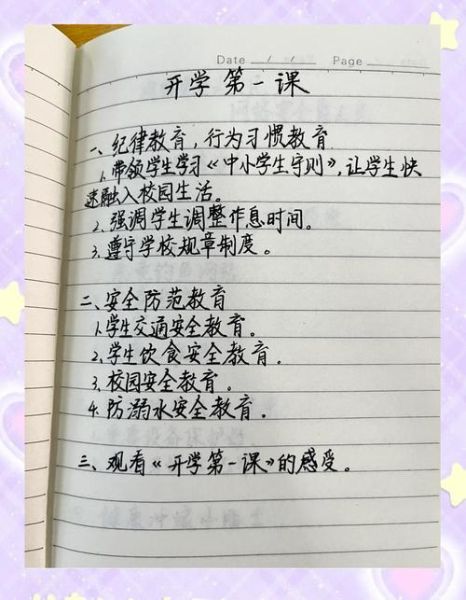 Date / / Page
开学第一课
一、纪律教育，行为习惯教育
1.带领学生学习《中小学生守则》,让学生快
速融入校园生活。
2.强调学生调整作息时间。
3.遵守学校规章制度。
二、安全防范教育
1.学生交通安全教育。
2.学生饮食安全教育。
3.校园安全教育。
4.防溺水安全教育.
三、观看《开学第一课》的感受。